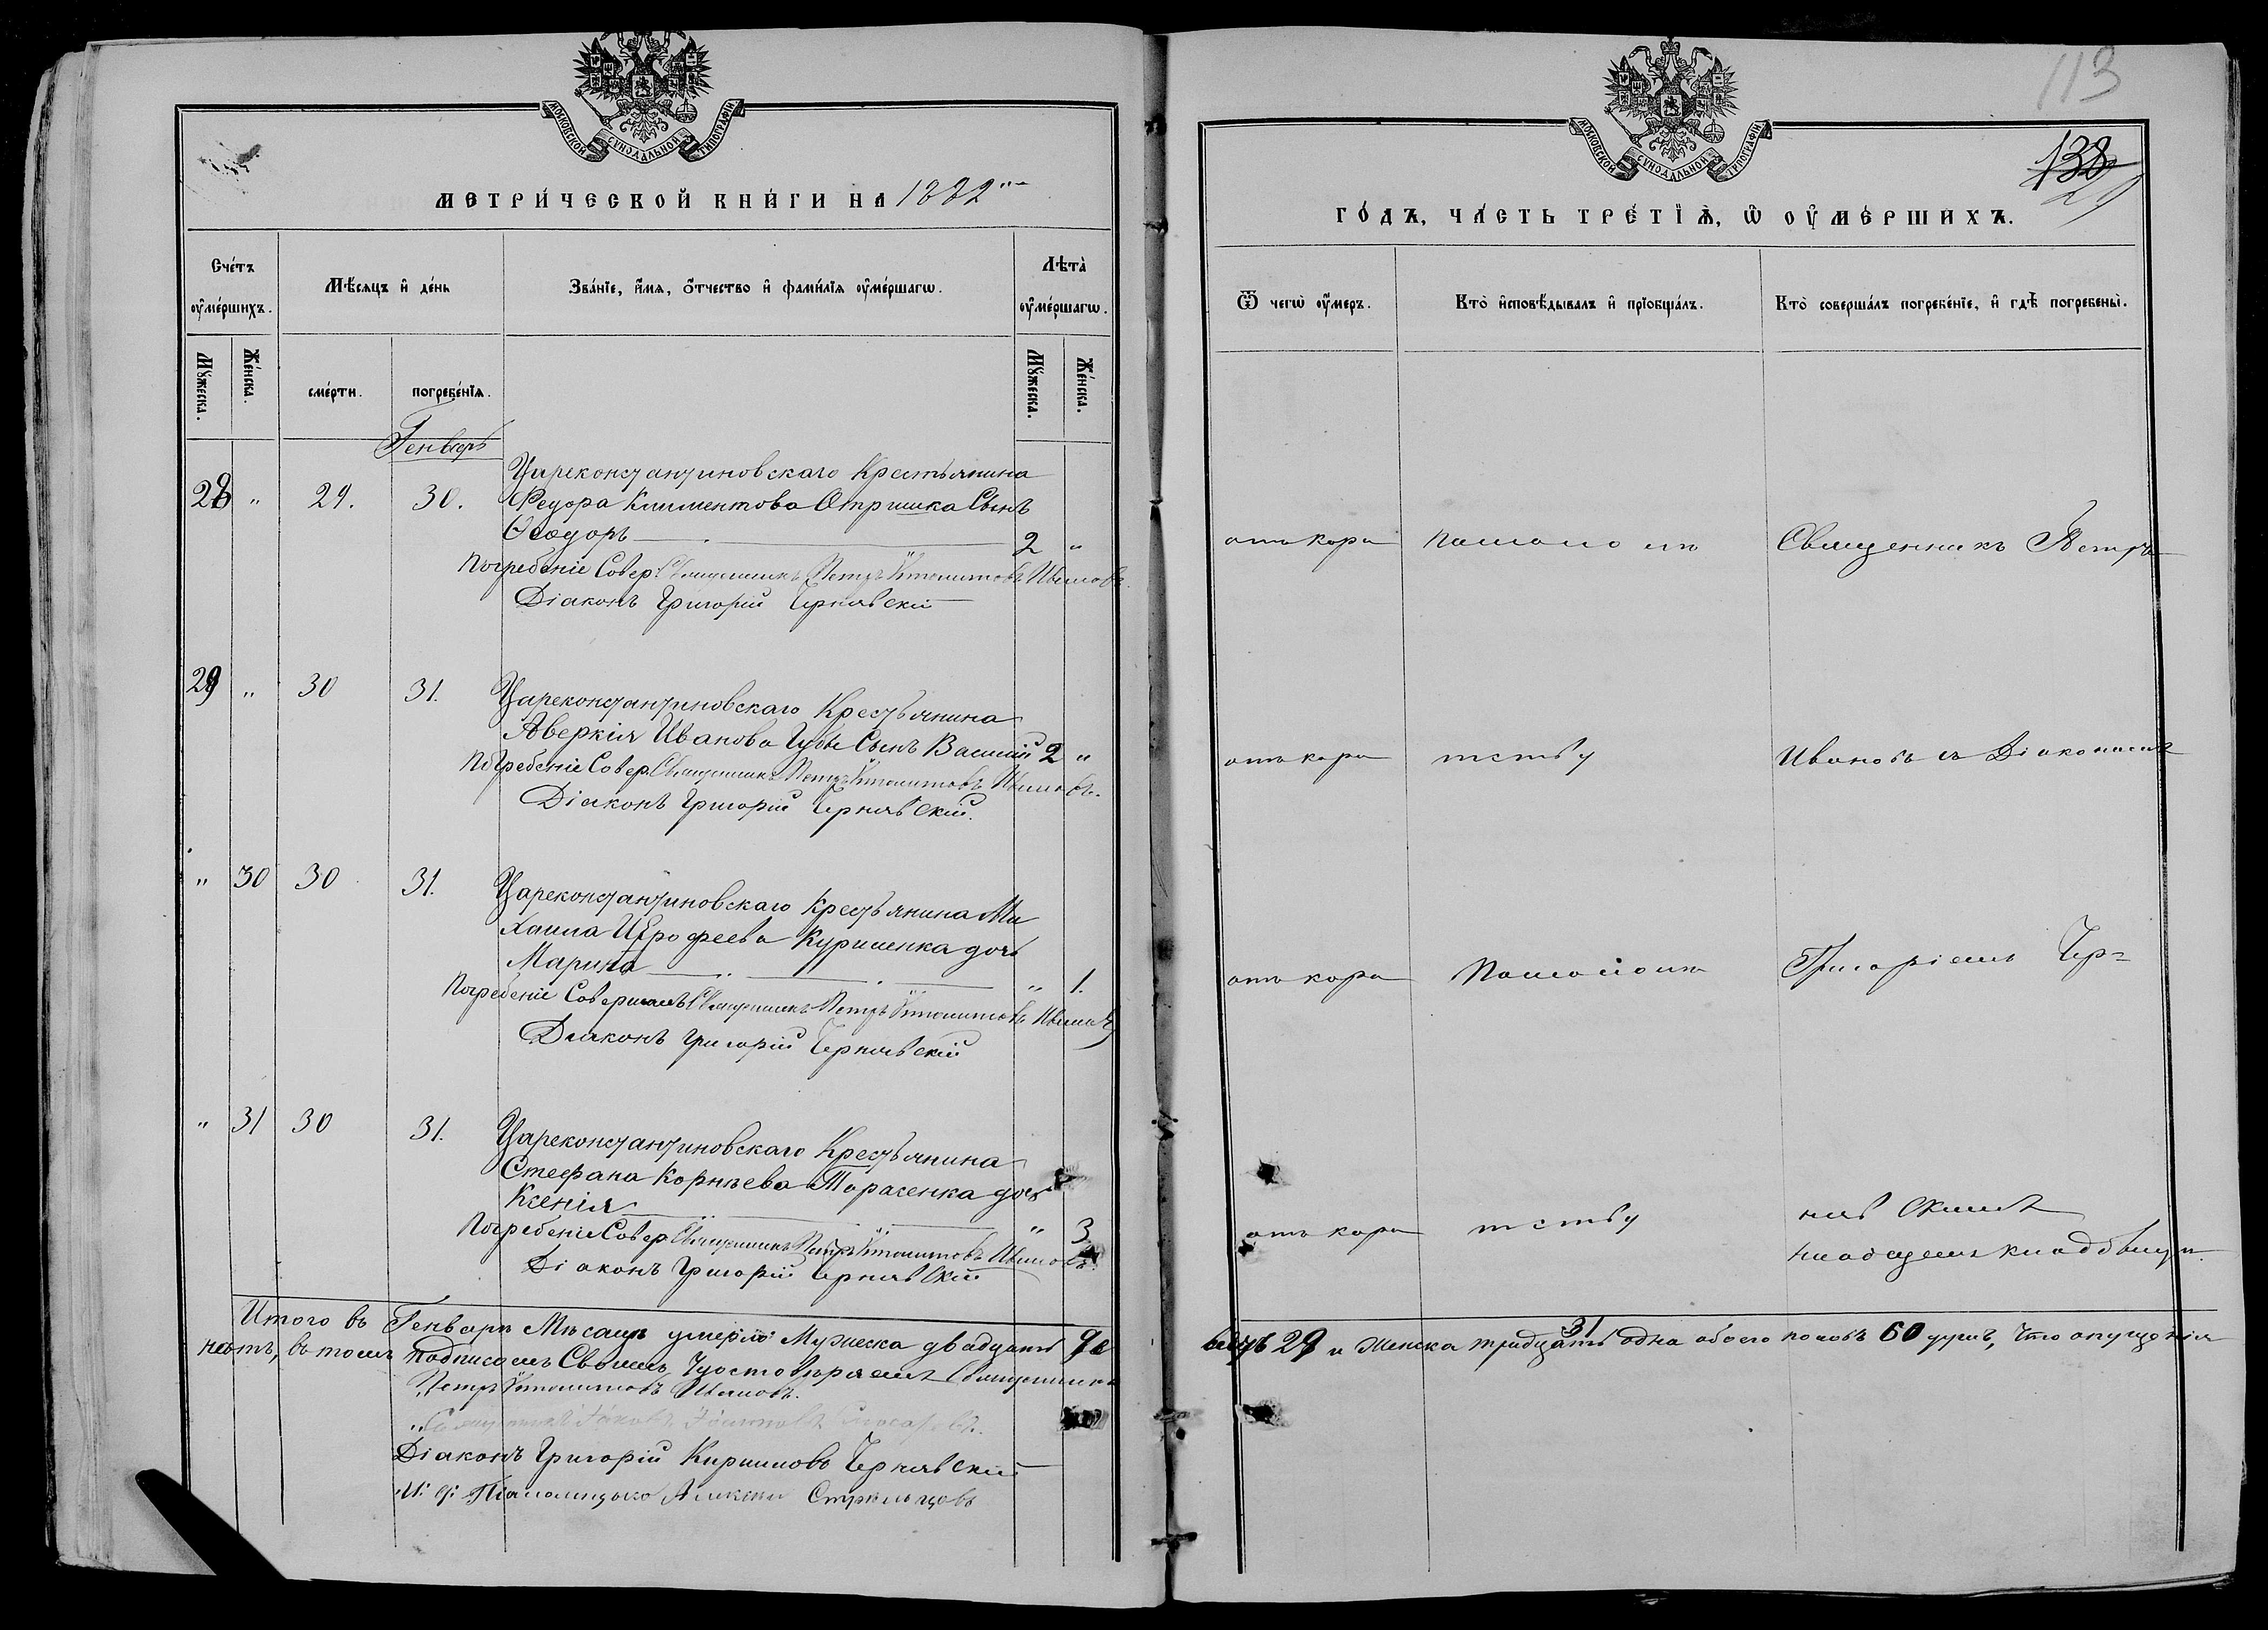 МОСКОВСКОЙ СУНОДАЛЬНОЙ ТИПОГРАФІИ
МЕТРИ́ЧЕСКОЙ КНИ́ГИ НА 1882
Сче́тъ оу҆ме́ршихъ.
Мѣ́сяцъ и҆ де́нь
Зва́нїе, и҆́мя, ѻ҆́тчество и҆ фами́лїя оу҆ме́ршагѡ.
Лѣта̀ оу҆ме́ршагѡ.
Мꙋ́жеска.
Же́нска.
сме́рти.
погребе́нїя.
Мꙋ́жеска.
Же́нска.
Генварь
28 " 29. 30. Цареконстантиновскаго Крестьянина
Федора Климентова Отришка Сынъ
Ѳеодоръ 2 "
Погребеніе Совер. Священникъ Петръ Ивановъ
Діаконъ Григорій Чернявскій
29 " 30 31. Цареконстантиновскаго Крестьянина
Аверкія Иванова Губы Сынъ Василій 2 "
Погребеніе Совер. Священникъ Петръ Ивановъ.
Діаконъ Григорій Чернявскій.
" 30 30 31. Цареконстантиновскаго Крестьянина Ми
хаила Иерофеева Куриленка дочь
Марина " 1.
Погребеніе Совершалъ Священникъ Петръ Ивановъ
Діаконъ Григорій Чернявскій
" 31 30 31. Цареконстантиновскаго Крестьянина
Стефана Корнѣева Тарасенка дочь
Ксенія " 3
Погребеніе Совер. Священникъ Петръ Ивановъ.
Діаконъ Григорій Чернявскій
Итого въ Генварѣ Мѣсяцѣ умерло Мужеска двадцать де
нѣтъ, въ томъ подписомъ Своимъ Удостовѣряемъ Священникъ
Петръ Ивановъ.
Діаконъ Григорій Кириловъ Чернявскій
И: д: Псаломщика Алексѣй Стрѣльцовъ
113
МОСКОВСКОЙ СУНОДАЛЬНОЙ ТИПОГРАФІИ
138
29
ГО́ДЪ, ЧА́СТЬ ТРЕ́ТЇѦ, Ѡ҆ ОУ҆МЕ́РШИХЪ.
Ѿ чегѡ̀ оу҆́меръ.
Кто̀ и҆сповѣ́дывалъ и҆ прїѻбща́лъ.
Кто̀ соверша́лъ погребе́нїе, и҆ гдѣ̀ погребены̀.
отъ кори По малолѣ Священникъ Петръ
отъ кори тству Ивановъ съ Діакономъ
отъ кори По малолѣ Григоріемъ Чер=
отъ кори тству нявскимъ
на общемъ кладбищѣ.
вять 29 и Женска тридцать одна 31 обоего половъ 60 душъ, Что опущенія